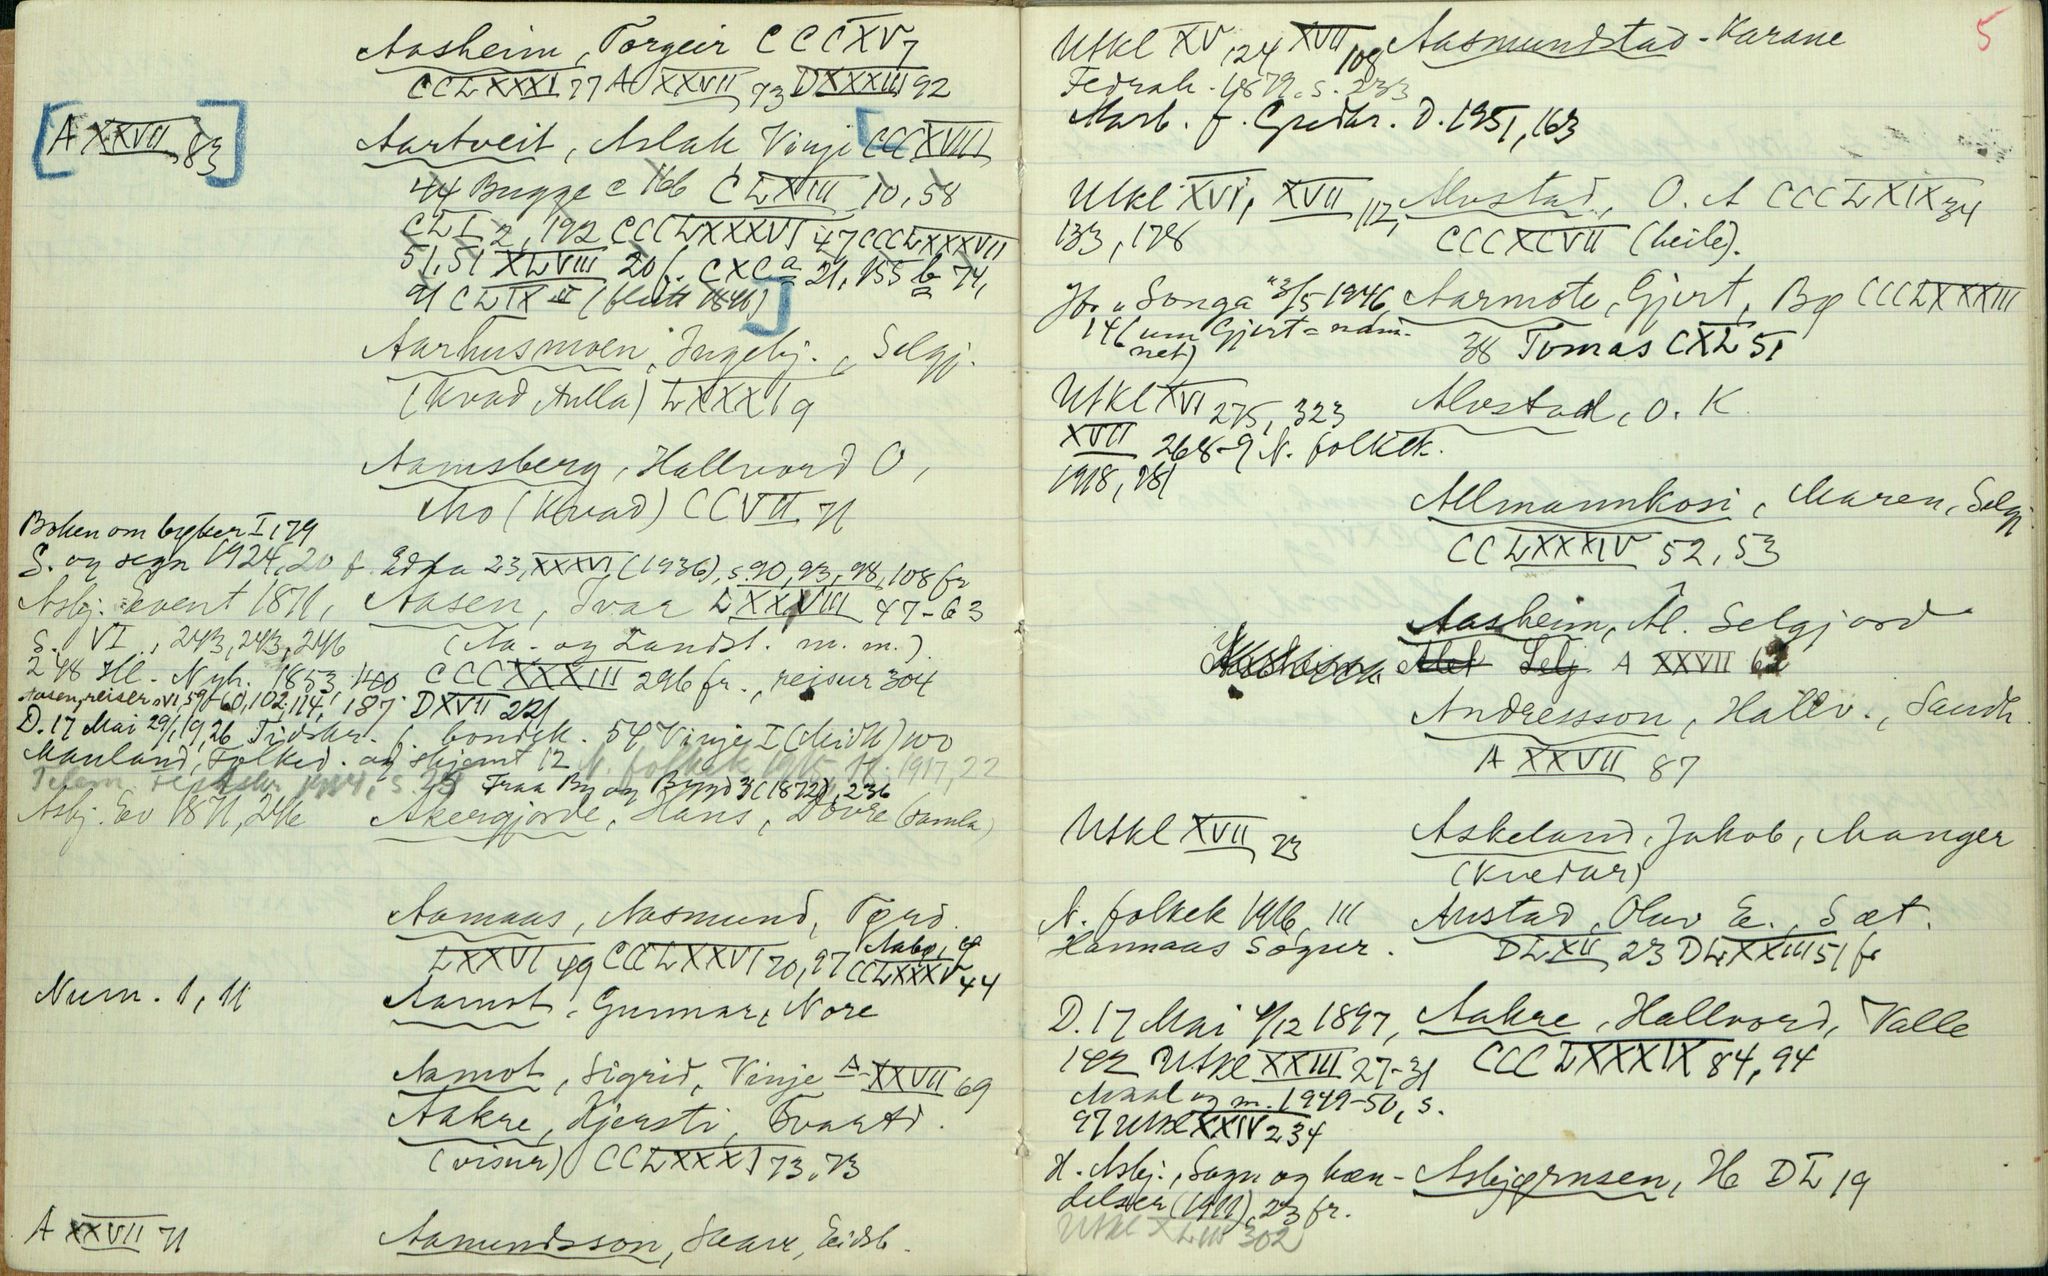 Aasheim, Torgeir CCCXV 7
CCLXXXI 77 A XXVII 73 DXXXIII 92
[A XXVII 83]
Aartveit, Aslak Vinje [CCCXVIII
44 Bugge c 166 CLXIII 10, 58
CLI 2, 192 CCCLXXXVI 47 CCCLXXXVII
51, 51 XLVIII 20 f. CXC a 21, 155 b 74,
91 CLIX (flutt 1846)]
Aarhusmoen, Ingebj., Selgj.
(kvad Aulla) LXXXI 9
Aamsberg, Hallvord O,
Mo (Kvad) CCVII 71
Boken om bygker I, 179
S. og segn 1924, 20 f. Edda 23, XXXVI (1936), s. 90, 93, 98, 108 fr
Asbj. Event 1871, Aasen, Ivar LXXVIII 47-63
S. VI, 243, 243, 246 (Aa. og Landst. m. m.)
248 Hl. Nyh. 1853, 140 CCCXXXIII 296 fr., reisur 304
Aasen, reiser VI, 59-60, 102, 114, 187 DXVII 221
D. 17 Mai 29/1, 19, 26 Tidskr. f. bondek. 54 Vinje I (Meidh) 100
Mauland, Folked. og skjemt 12 N. folkek 1915, 1917, 22
Telem. Festskr. 1914, s. 28 Fraa By og Bygd 3 (1872), 236
Asbj. Ev 1871, 246 Akergjorde, Hans, Dovre (samla)
Aamaas, Aasmund, Tørd.
LXXVI 49 CCLXXVI 70, 97 CCLXXXV 44
Num. 1, 11 Aamot, Gunnar, Nore
Aamot, Sigrid, Vinje A XXVII 69
Aakre, Kjersti, Tvartd.
(visur) CCLXXXI 73, 73
A XXVII 71 Aamundsson, Eidsb.
5
Utkl XV, 124 XVII 108 Aasmundstad-Karane
Fedrah. 1879. s. 233
Aarb. f. Gredkr. D. 1951, 163
Utkl XVI, XVII 112, Alvstad, O. A CCCLXIX 34
133, 178 CCCXCVII (heile).
Jfr „Songa" 3/5 1946, Aarmote, Gjert, Bg CCCLXXXIII
146 (um Gjert = nam- 38 Tomas CXL 51
net)
Utkl XVI 275, 323 Alvstad, O. K.
XVII 268-9 N. folkek.
1918, 181
Allmannkosi, Maren, Selgj
CCLXXXIV 52, 53
Aasheim, Al. Selgjord
A XXVII 62
Andresson, Hallv., Sandh.
A XXVII 87
Utkl XVII 23 Askeland, Jakob, Manger
(Kvedar)
N. folkek 1916, 111 Austad, Olav E., Sæt.
Hannaas Sogur. DLXII 23 DLXXIII 51 fr
D. 17 Mai 4/12 1897, Aakre, Hallvord, Valle
142 Utkl XXIII 27-31 CCCLXXXIX 84, 94
Maal og m. 1949-50, s.
97 Utkl XXIV 234
H. Asbj., Sagn og hæn- Asbjørnsen, H DL 19
delser (1911), 23 fr.
Utkl XLIII 302